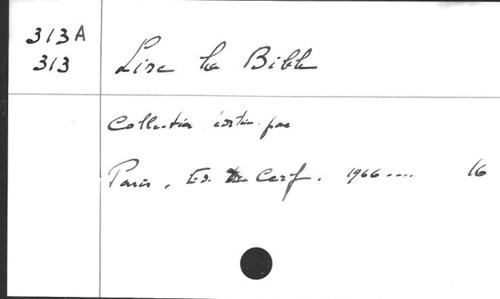 313A
313
Lire la Bible
Collection éditée par
Paris, Ed. du Cerf. 1966.... 16